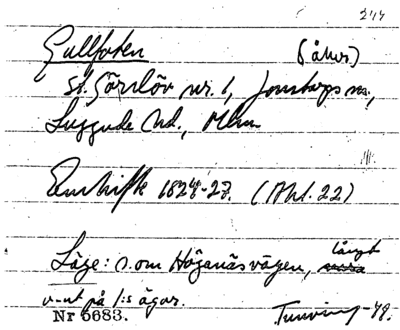 244
Gullfoten (åker.)
St. Görslöv nr. 1, Jonstorps sn.,
Luggude hd., Mlm
Enskifte 1824-27. (Akt. 22)
Läge: S. om Höganäsvägen, långt
v-ut på 1:s ägor.
Nr 5683. Tunving -48.